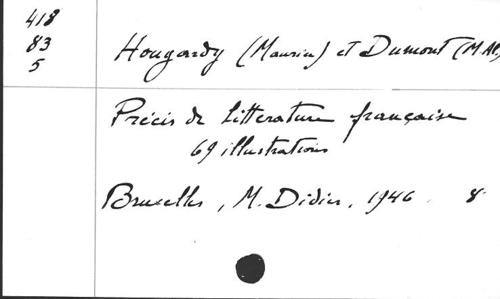 418
83
5
Hougardy (Maurice) et Dumont (M Al.)
Précis de littérature française
69 illustrations
Bruxelles, M. Didier, 1946. 8°